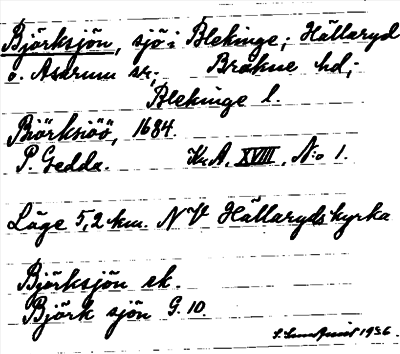 Björksjön, sjö i Blekinge; Hällaryd
o. Asarum sr; Bräkne hd;
Blekinge l.
Biörksiöö, 1684.
P. Gedda. Kr.A. XVIII, N:o 1.
Läge 5,2 km. NV Hällaryds kyrka
Björksjön ek.
Björk sjön G. 10.
1936.